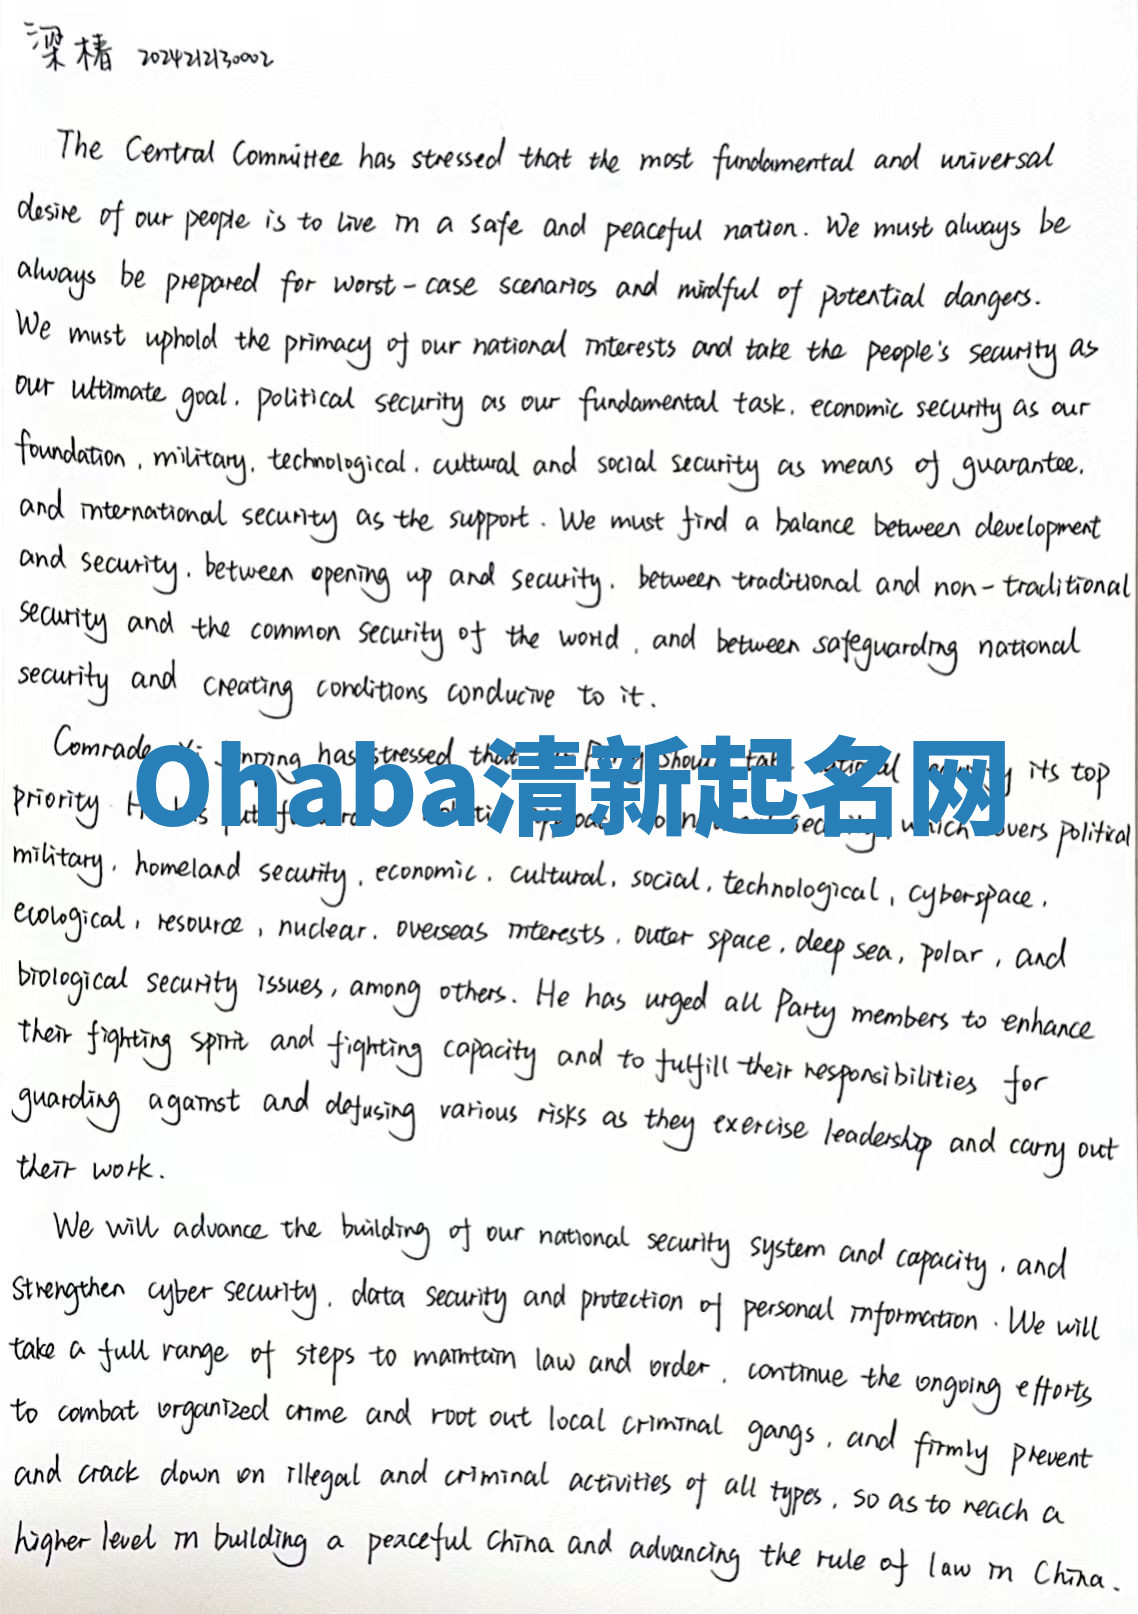 梁椿 2024212130002
The Central Committee has stressed that the most fundamental and universal
desire of our people is to live in a safe and peaceful nation. We must always be
always be prepared for worst-case scenarios and mindful of potential dangers.
We must uphold the primacy of our national interests and take the people's security as
our ultimate goal, political security as our fundamental task, economic security as our
foundation, military, technological, cultural and social security as means of guarantee,
and international security as the support. We must find a balance between development
and security, between opening up and security, between traditional and non-traditional
security and the common security of the world, and between safeguarding national
security and creating conditions conducive to it.
Comrade has stressed that its top
Ohaba清新起名网
priority which political
military, homeland security, economic, cultural, social, technological, cyberspace,
ecological, resource, nuclear, overseas interests, outer space, deep sea, polar, and
biological security issues, among others. He has urged all Party members to enhance
their fighting spirit and fighting capacity and to fulfill their responsibilities for
guarding against and defusing various risks as they exercise leadership and carry out
their work.
We will advance the building of our national security system and capacity, and
strengthen cyber security, data security and protection of personal information. We will
take a full range of steps to maintain law and order, continue the ongoing efforts
to combat organized crime and root out local criminal gangs, and firmly prevent
and crack down on illegal and criminal activities of all types, so as to reach a
higher level in building a peaceful China and advancing the rule of law in China.